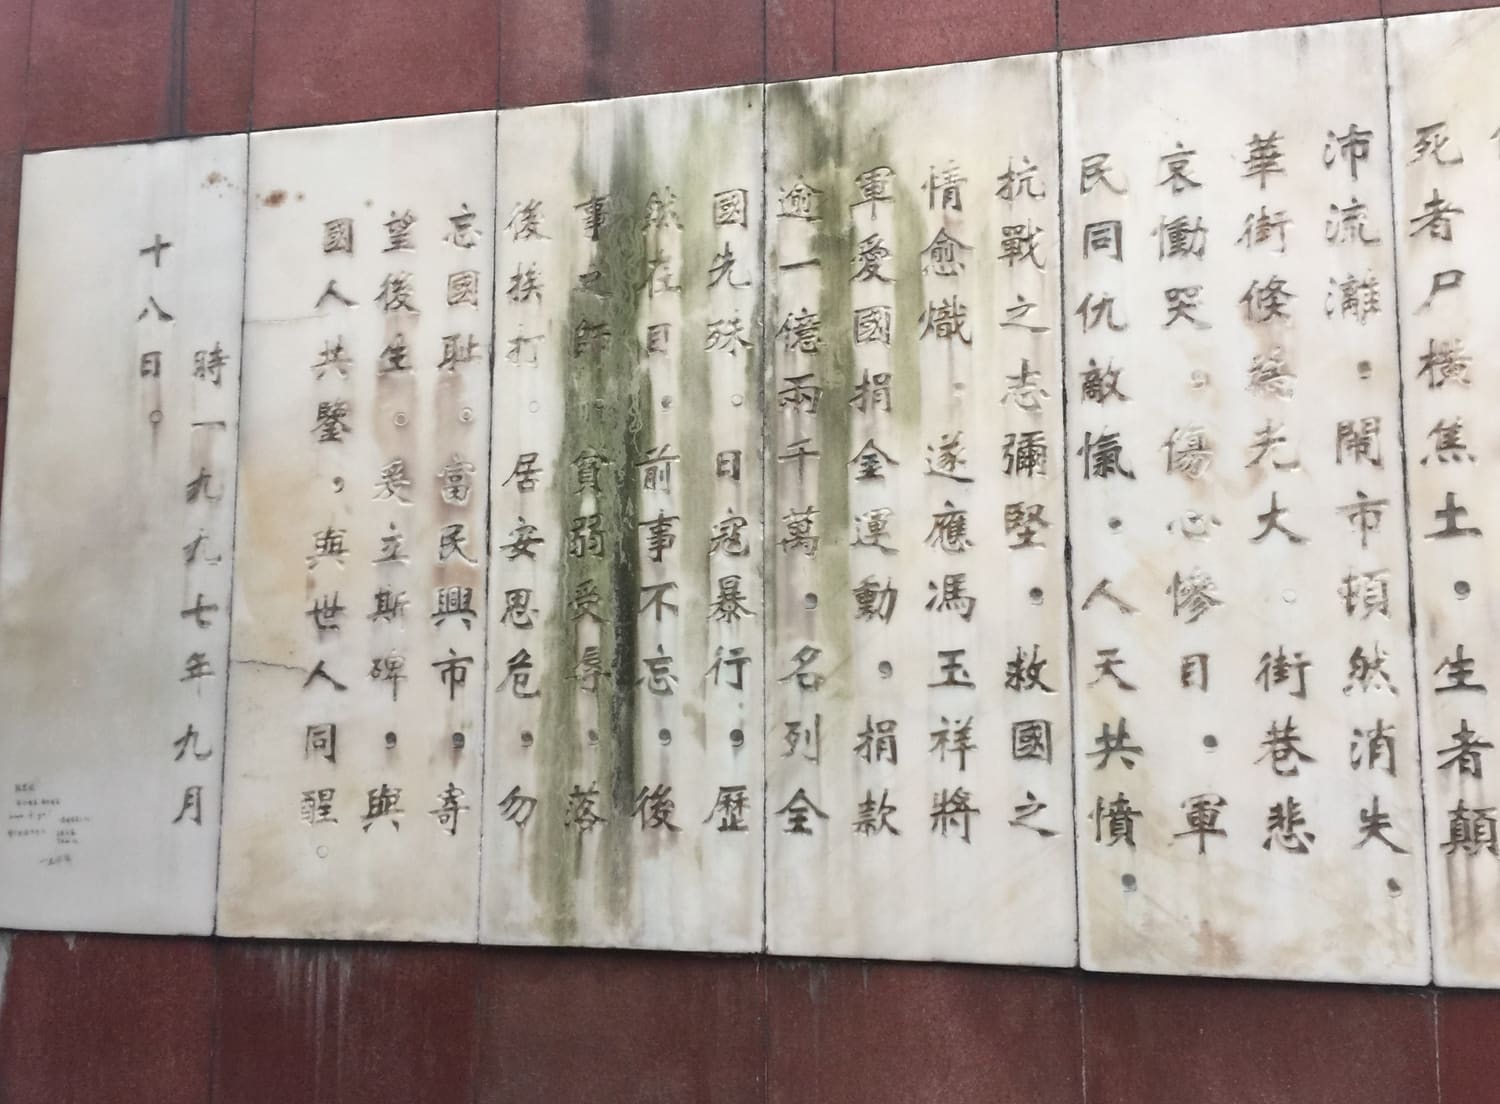 死者尸橫焦土．生者顛
沛流灕．鬧市頓然消失．
華街倏為光大。街巷悲
哀慟哭。傷心慘目．軍
民同仇敵愾．人天共憤．
抗戰之志彌堅．救國之
情愈熾．遂應馮玉祥將
軍愛國捐金運動．捐款
逾一億兩千萬．名列全
國先殊。日寇暴行，歷
然在目．前事不忘，後
事之師．貧弱受辱．落
後挨打。居安思危．勿
忘國耻。當民興市，寄
望後生。爰立斯碑，與
國人共鑒，與世人同醒。
時一九九七年九月
十八日。